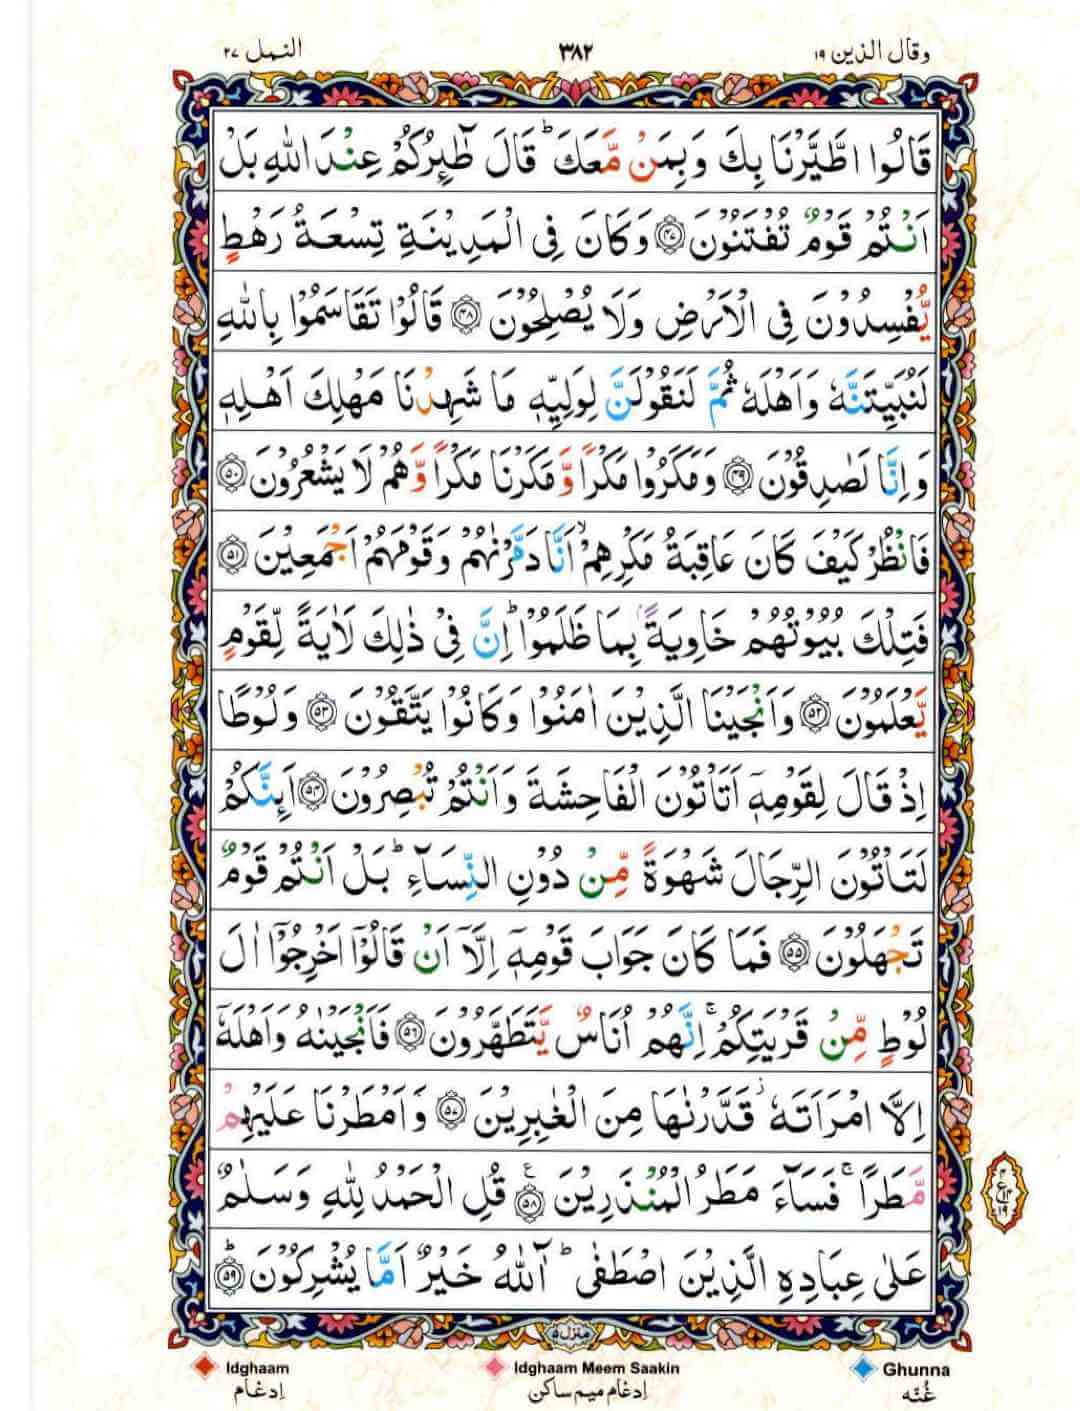 وقال الذين ١٩ ٣٨٢ النمل ٢٧
قَالُوا اطَّيَّرْنَا بِكَ وَبِمَنْ مَّعَكَ ؕ قَالَ طٰٓئِرُكُمْ عِنْدَ اللّٰهِ بَلْ
اَنْتُمْ قَوْمٌ تُفْتَنُوْنَ ﴿۴۷﴾ وَكَانَ فِى الْمَدِيْنَةِ تِسْعَةُ رَهْطٍ
يُّفْسِدُوْنَ فِى الْاَرْضِ وَلَا يُصْلِحُوْنَ ﴿۴۸﴾ قَالُوْا تَقَاسَمُوْا بِاللّٰهِ
لَنُبَيِّتَنَّهٗ وَاَهْلَهٗ ثُمَّ لَنَقُوْلَنَّ لِوَلِيِّهٖ مَا شَهِدْنَا مَهْلِكَ اَهْلِهٖ
وَاِنَّا لَصٰدِقُوْنَ ﴿۴۹﴾ وَمَكَرُوْا مَكْرًا وَّمَكَرْنَا مَكْرًا وَّهُمْ لَا يَشْعُرُوْنَ ﴿۵۰﴾
فَانْظُرْ كَيْفَ كَانَ عَاقِبَةُ مَكْرِهِمْ ۙ اَنَّا دَمَّرْنٰهُمْ وَقَوْمَهُمْ اَجْمَعِيْنَ ﴿۵۱﴾
فَتِلْكَ بُيُوْتُهُمْ خَاوِيَةًۢ بِمَا ظَلَمُوْا ؕ اِنَّ فِىْ ذٰلِكَ لَاٰيَةً لِّقَوْمٍ
يَّعْلَمُوْنَ ﴿۵۲﴾ وَاَنْجَيْنَا الَّذِيْنَ اٰمَنُوْا وَكَانُوْا يَتَّقُوْنَ ﴿۵۳﴾ وَلُوْطًا
اِذْ قَالَ لِقَوْمِهٖۤ اَتَاْتُوْنَ الْفَاحِشَةَ وَاَنْتُمْ تُبْصِرُوْنَ ﴿۵۴﴾ اَئِنَّكُمْ
لَتَاْتُوْنَ الرِّجَالَ شَهْوَةً مِّنْ دُوْنِ النِّسَآءِ ؕ بَلْ اَنْتُمْ قَوْمٌ
تَجْهَلُوْنَ ﴿۵۵﴾ فَمَا كَانَ جَوَابَ قَوْمِهٖۤ اِلَّاۤ اَنْ قَالُوْۤا اَخْرِجُوْۤا اٰلَ
لُوْطٍ مِّنْ قَرْيَتِكُمْ ۚ اِنَّهُمْ اُنَاسٌ يَّتَطَهَّرُوْنَ ﴿۵۶﴾ فَاَنْجَيْنٰهُ وَاَهْلَهٗۤ
اِلَّا امْرَاَتَهٗ ۫ قَدَّرْنٰهَا مِنَ الْغٰبِرِيْنَ ﴿۵۷﴾ وَاَمْطَرْنَا عَلَيْهِمْ
مَّطَرًا ۚ فَسَآءَ مَطَرُ الْمُنْذَرِيْنَ ﴿۵۸﴾ ع قُلِ الْحَمْدُ لِلّٰهِ وَسَلٰمٌ
عَلٰى عِبَادِهِ الَّذِيْنَ اصْطَفٰى ؕ آٰللّٰهُ خَيْرٌ اَمَّا يُشْرِكُوْنَ ﴿۵۹﴾ ؕ
۴ ع ۱۴ ۱۹
منزل ۵
Idghaam Idghaam Meem Saakin Ghunna
اِدغام اِدغام میم ساکن غُنّہ